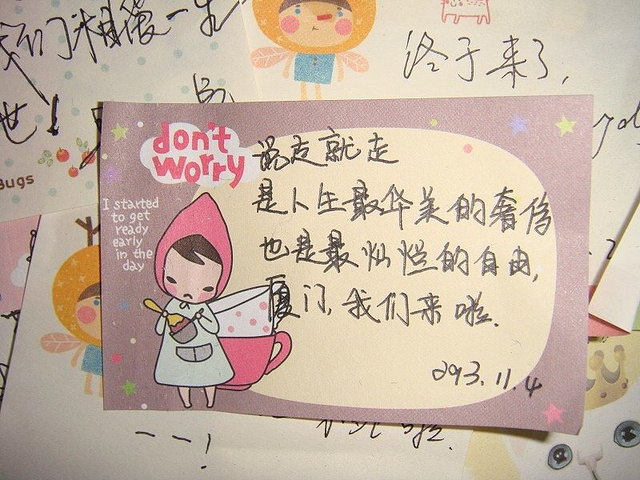 我们相偎一生
世！
Bugs
终于来了，
don't
worry
I started
to get
ready
early
in the
day
说走就走
是人生最华美的奢侈
也是最灿烂的自由，
厦门，我们来啦。
2013.11.4
一一！